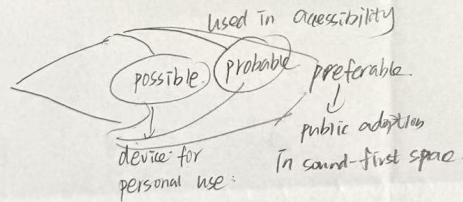 used in accessibility
possible
probable
preferable
device for
personal use:
public adoption
In sound-first space